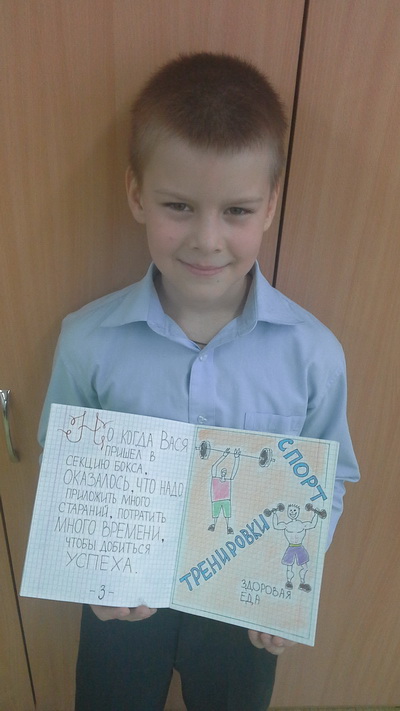 НО КОГДА ВАСЯ
ПРИШЕЛ В
СЕКЦИЮ БОКСА,
ОКАЗАЛОСЬ, ЧТО НАДО
ПРИЛОЖИТЬ МНОГО
СТАРАНИЙ, ПОТРАТИТЬ
МНОГО ВРЕМЕНИ,
ЧТОБЫ ДОБИТЬСЯ
УСПЕХА.
-3-
СПОРТ
ТРЕНИРОВКИ
ЗДОРОВАЯ
ЕДА